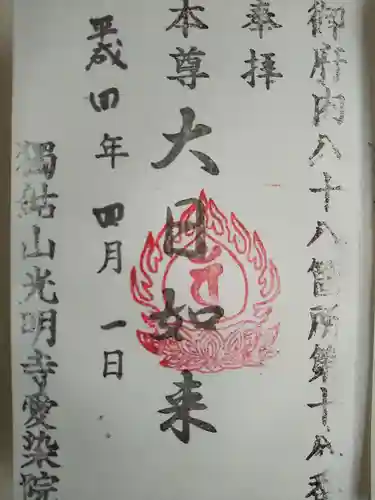 御府内八十八箇所第十八番
奉拝
本尊 大日如来
平成四年四月一日
獨鈷山光明寺愛染院